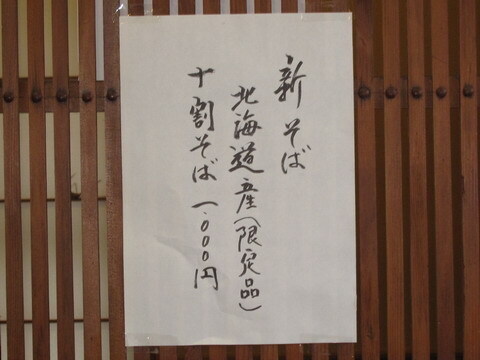 新そば
北海道産(限定品)
十割そば 一.〇〇〇円